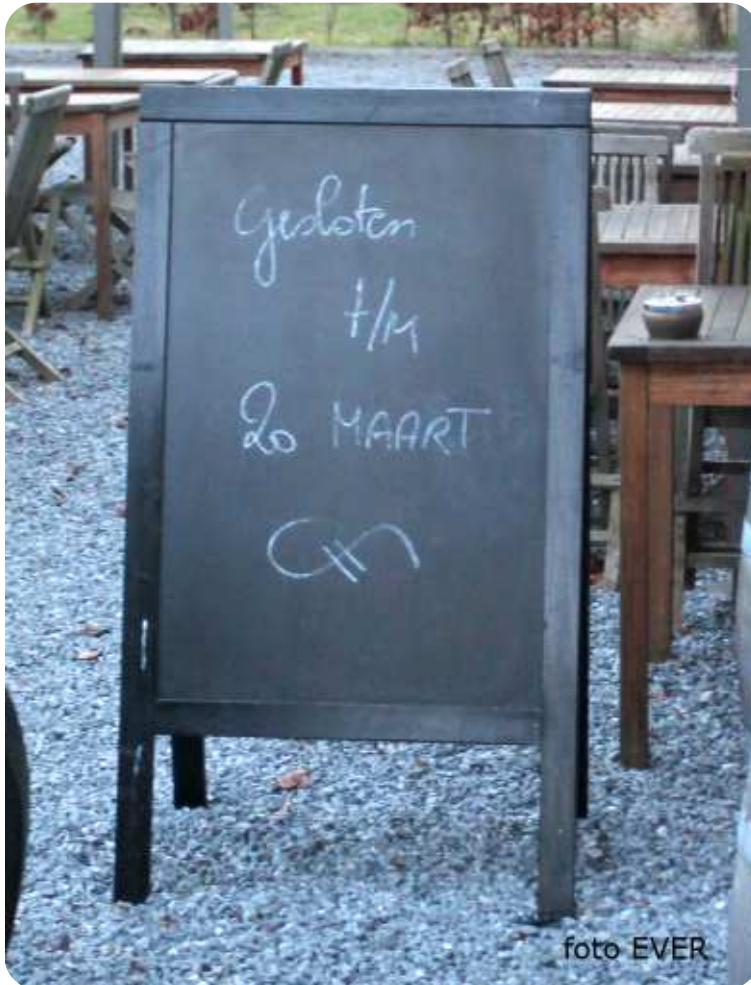 Gesloten
t/m
20 MAART
foto EVER